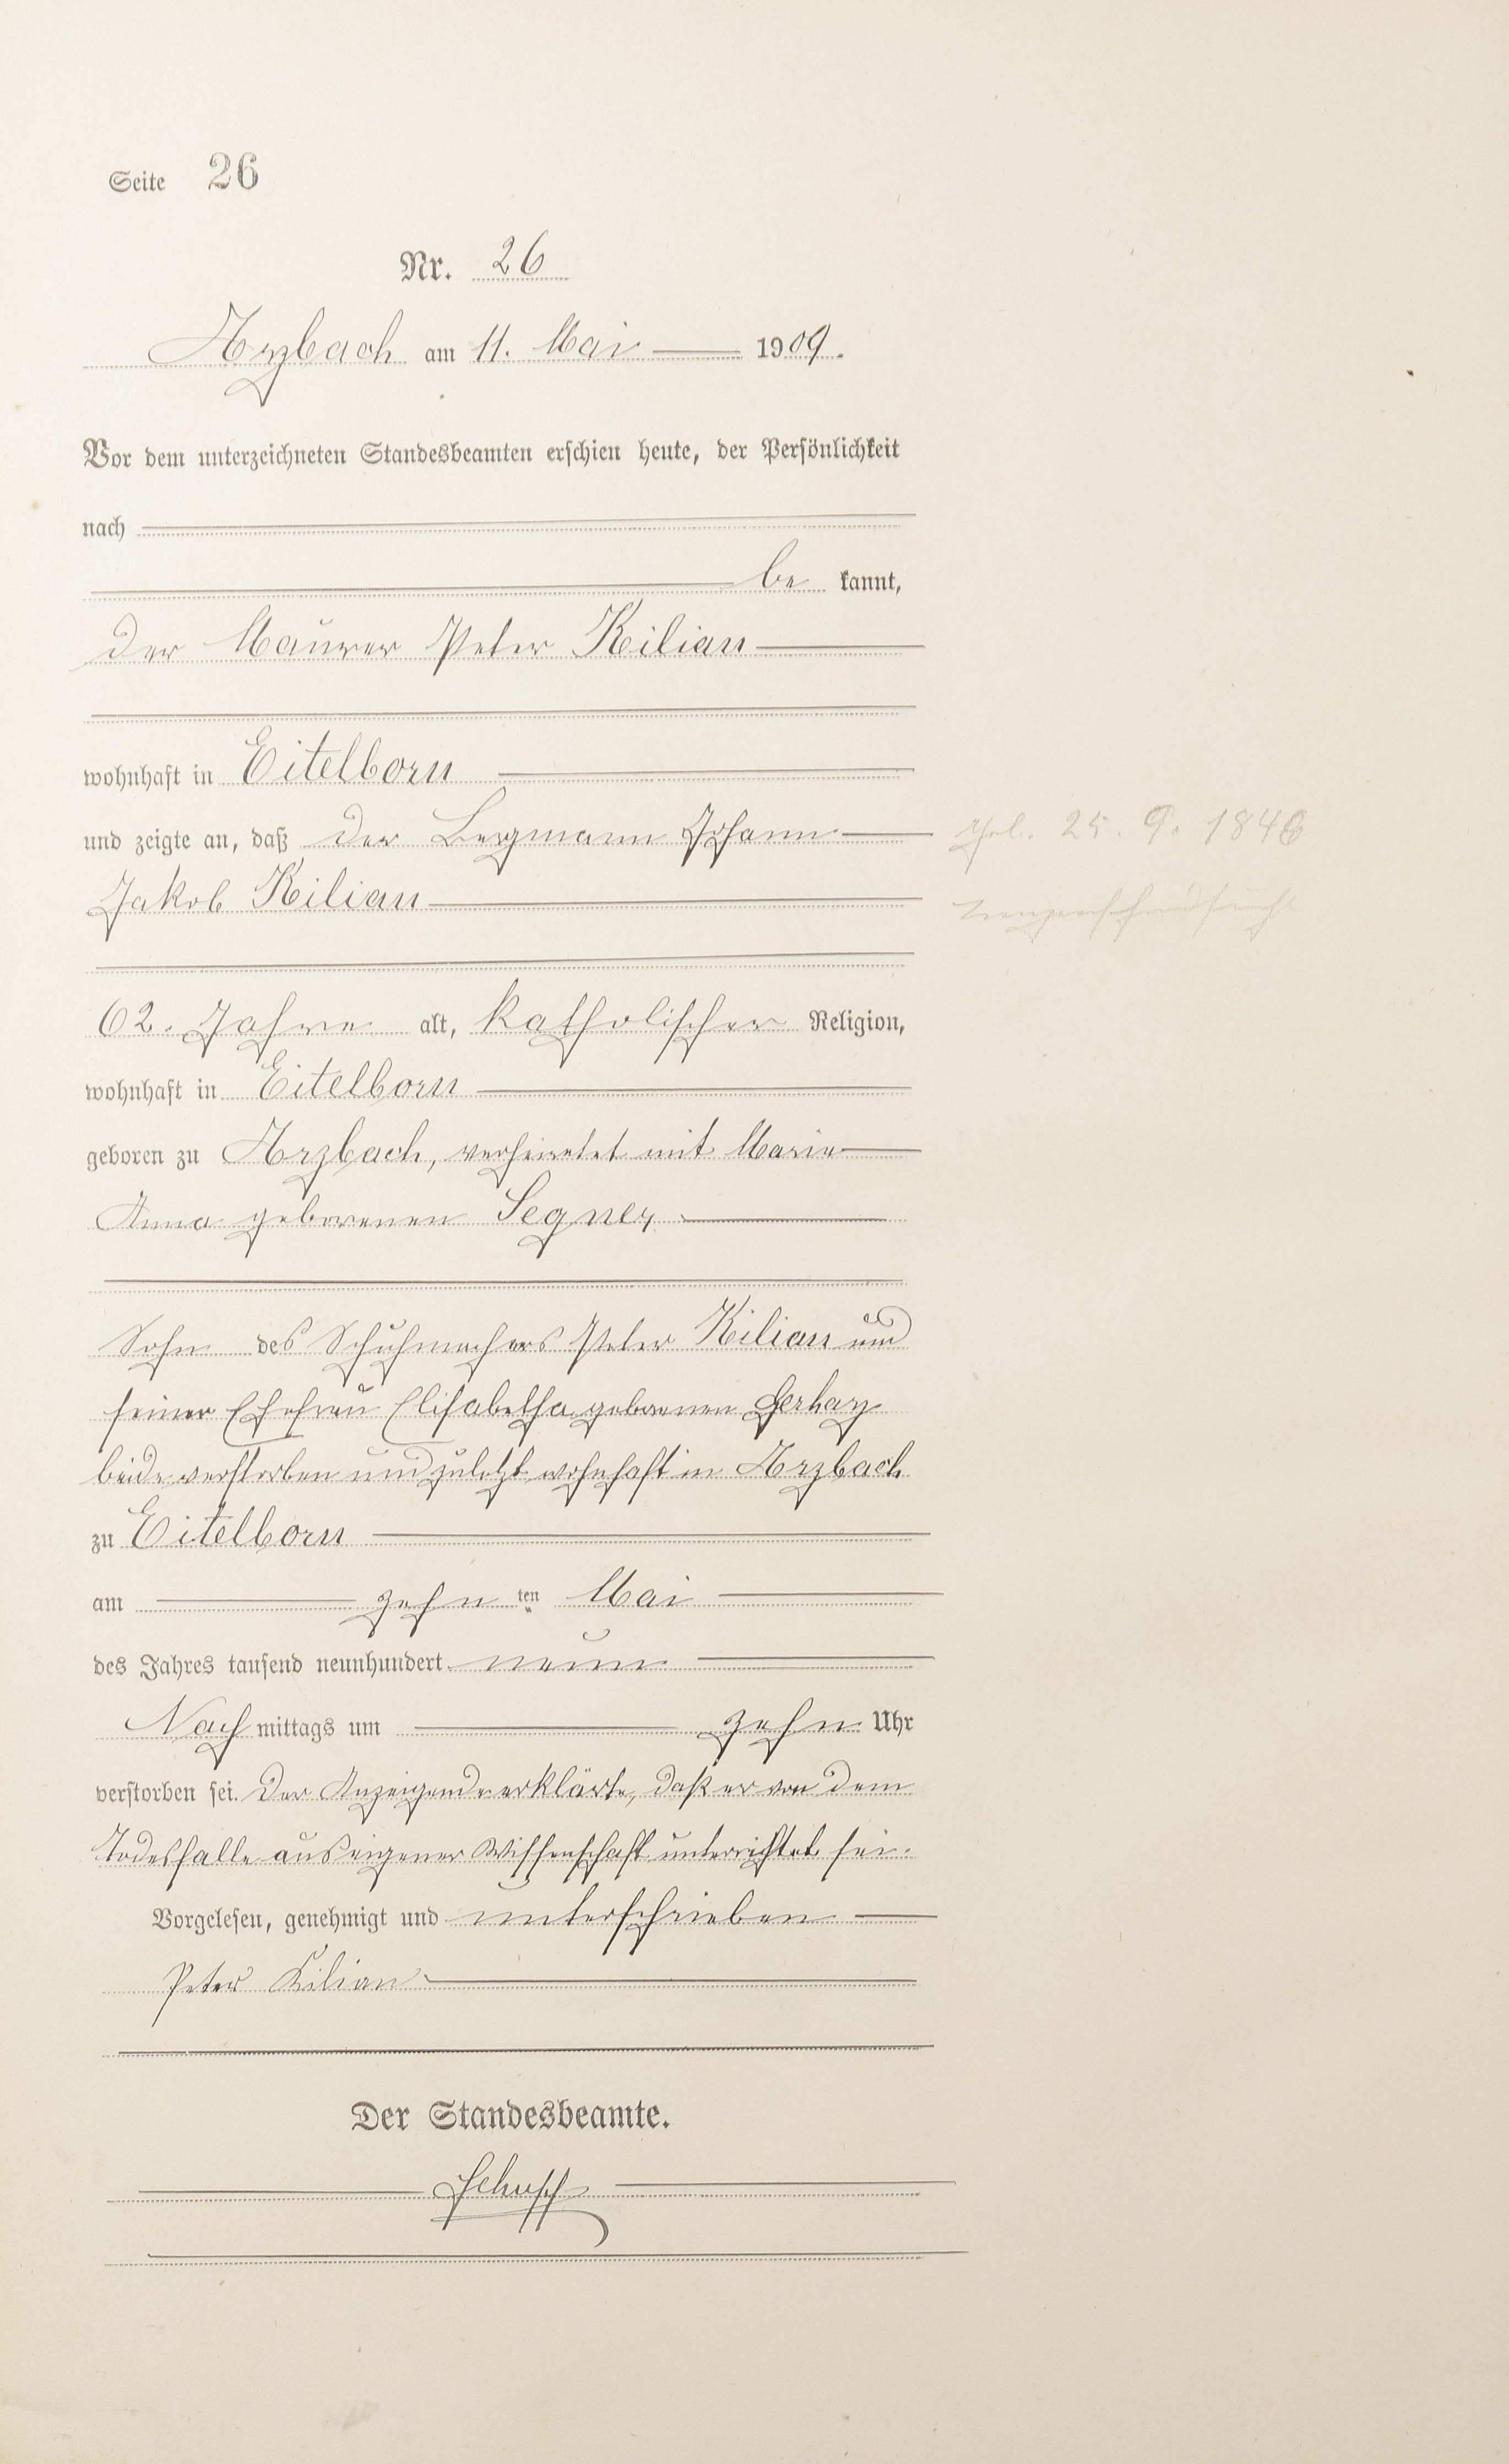 Seite 26
Nr. 26
Arzbach am 11. Mai 1909.
Vor dem unterzeichneten Standesbeamten erschien heute, der Persönlichkeit
nach
be kannt,
der Maurer Peter Kilian
wohnhaft in Eitelborn
und zeigte an, daß der Bergmann Johann
geb. 25. 9. 1846
Jakob Kilian
Lungenschwindsucht
62 Jahre alt, katholischer Religion,
wohnhaft in Eitelborn
geboren zu Arzbach, verheiratet mit Maria
Anna geborenen Segner
Sohn des Schuhmachers Peter Kilian und
seiner Ehefrau Elisabetha geborenen Gerharz
beide verstorben und zuletzt wohnhaft in Arzbach
zu Eitelborn
am zehn ten Mai
des Jahres tausend neunhundert neun
Nach mittags um zehn Uhr
verstorben sei. Der Anzeigende erklärte, daß er von dem
Todesfalle aus eigener Wissenschaft unterrichtet sei.
Vorgelesen, genehmigt und unterschrieben
Peter Kilian
Der Standesbeamte.